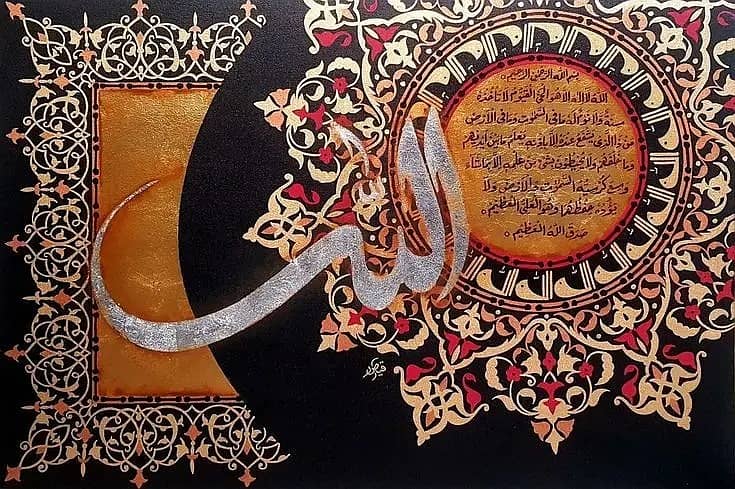 بسم الله الرحمن الرحيم
الله لا اله الا هو الحي القيوم لا تأخذه
سنة ولا نوم له ما في السموت وما في الارض
من ذا الذي يشفع عنده الا باذنه يعلم ما بين ايديهم
وما خلفهم ولا يحيطون بشئ من علمه الا بما شاء
وسع كرسيه السموت والارض ولا
يؤده حفظهما وهو العلي العظيم
صدق الله العظيم
الله